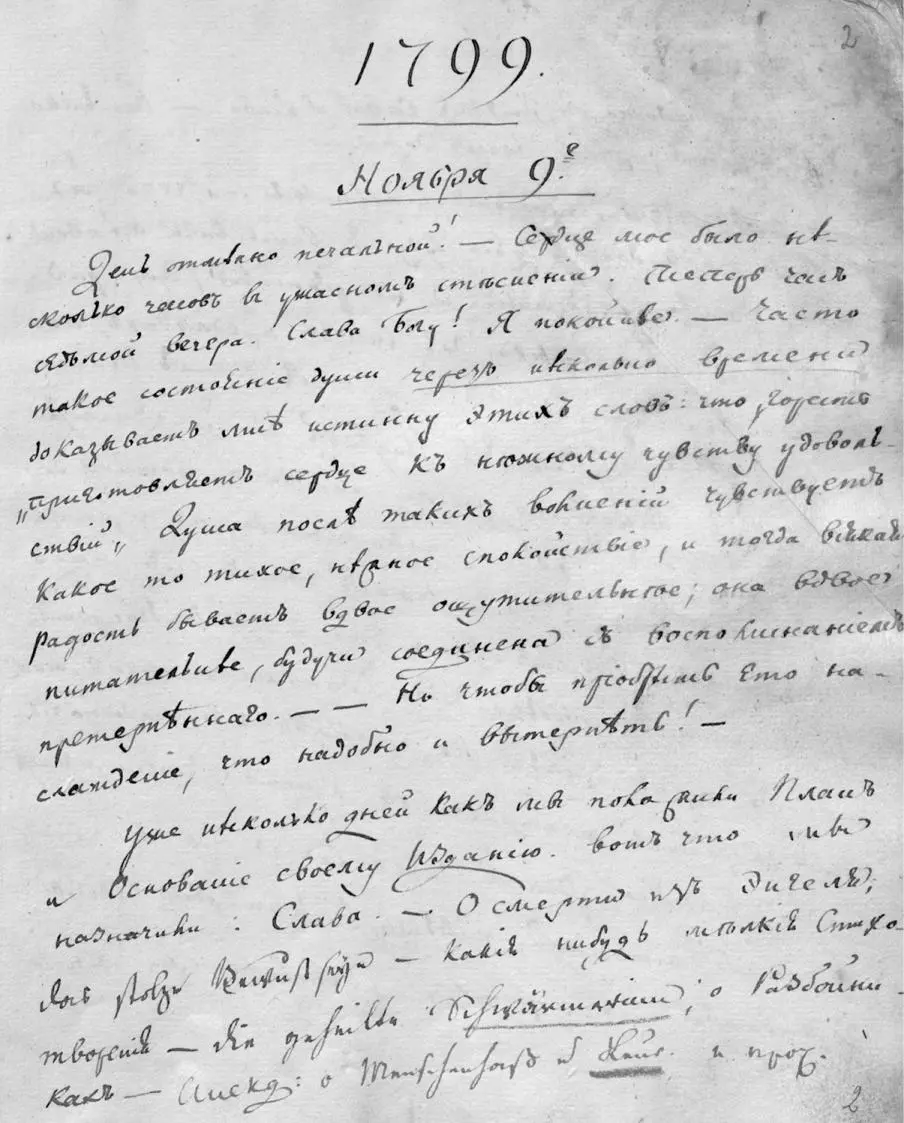 2
1799.
Ноября 9.е
День отмѣнно печальной! — Сердце мое было нѣ-
сколько часовъ въ ужасномъ стѣсненіи. Теперь часъ
седьмой вечера. Слава Богу! Я покойнѣе. — Часто
такое состояніе души черезъ нѣсколько времени
доказываетъ мнѣ истинну этихъ словъ: что горесть
„приготовляетъ сердце къ нѣжному чувству удоволь-
ствій„ Душа послѣ такихъ волненій чувствуетъ
какое то тихое, нѣжное спокойствіе, и тогда всякая
радость бываетъ вдвое ощутительнѣе; она вдвое
питательнѣе, будучи соединена съ воспоминаніемъ
претерпѣннаго. — — Но чтобы пріобрѣсть ето на-
слажденіе, что надобно и вытерпѣть! —
Уже нѣсколько дней какъ мы положили Планъ
и Основаніе своему Изданію. Вотъ что мы
назначили: Слава. — О смерти изъ Энгеля;
das stolze Bewußtseyn — какія нибудь мѣлкія Стихо-
творенія — die geheilte Schwärmerinn; о Разбойни-
какъ — Анекд: о Menschenhaß u Reue. и проч.
2